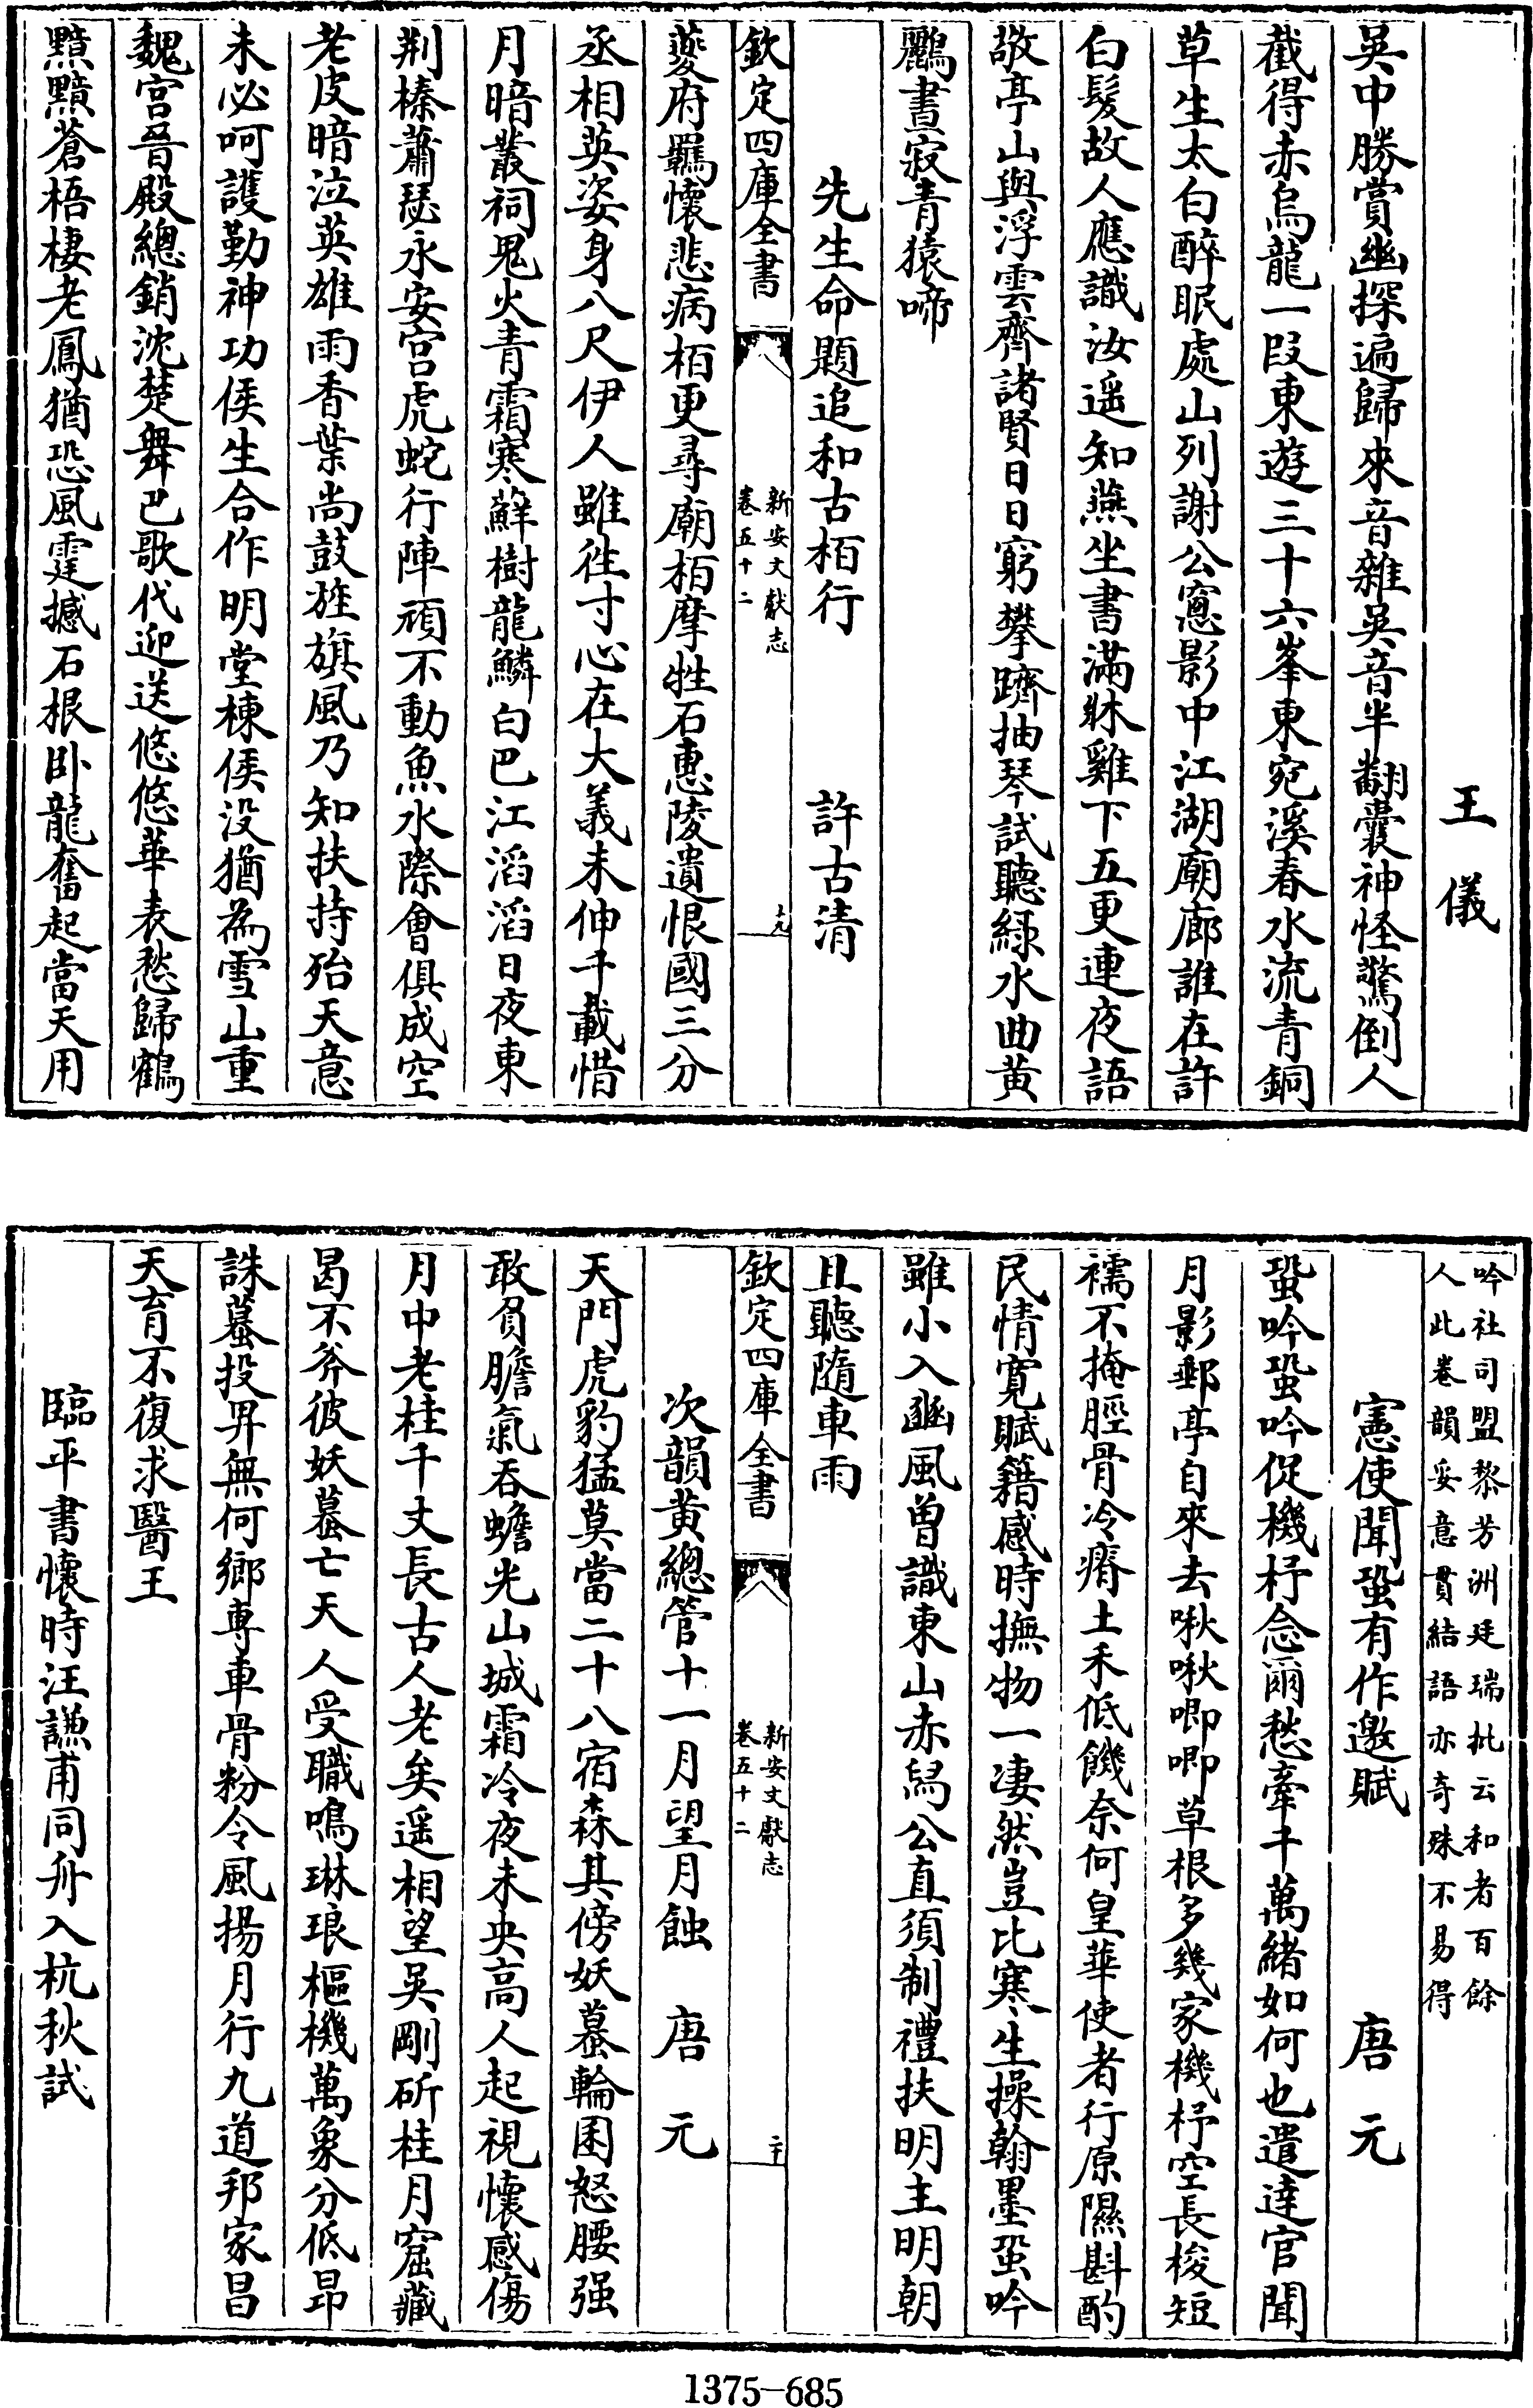 王儀
吳中勝賞幽探遍歸來音雜吳音半翻囊神怪驚倒人
截得赤烏龍一段東遊三十六峯東宛溪春水流青銅
草生太白醉眠處山列謝公窻影中江湖廟廊誰在許
白髮故人應識汝遥知燕坐書滿牀雞下五更連夜語
敬亭山與浮雲齊諸賢日日窮攀躋抽琴試聽綠水曲黄
鸝晝寂青猿啼
先生命題追和古栢行 許古清
欽定四庫全書 新安文獻志卷五十二 十九
夔府羈懷悲病栢更尋廟栢摩牲石惠陵遺恨國三分
丞相英姿身八尺伊人雖徃寸心在大義未伸千載惜
月暗叢祠鬼火青霜寒蘚樹龍鱗白巴江滔滔日夜東
荆榛蕭瑟永安宫虎蛇行陣頑不動魚水際會俱成空
老皮暗泣英雄雨香葉尚鼓旌旗風乃知扶持殆天意
未必呵護勤神功侯生合作明堂棟侯没猶為雪山重
魏宫晉殿總銷沈楚舞巴歌代迎送悠悠華表愁歸鶴
黯黯蒼梧棲老鳳猶恐風霆撼石根卧龍奮起當天用
吟社司盟黎芳洲廷瑞批云和者百餘
人此卷韻妥意貫結語亦奇殊不易得
憲使聞蛩有作邀賦 唐元
蛩吟蛩吟促機杼念爾愁牽千萬緒如何也遣達官聞
月影郵亭自來去啾啾唧唧草根多幾家機杼空長梭短
襦不掩脛骨冷瘠土禾低饑奈何皇華使者行原隰斟酌
民情寛賦籍感時撫物一凄然豈比寒生操翰墨蛩吟
雖小入豳風曽識東山赤舄公直須制禮扶明主明朝
且聽隨車雨
欽定四庫全書 新安文獻志卷五十二 二十
次韻黄總管十一月望月蝕 唐元
天門虎豹猛莫當二十八宿森其傍妖蟇輪囷怒腰强
敢負膽氣吞蟾光山城霜冷夜未央高人起視懷感傷
月中老桂千丈長古人老矣遥相望吳剛斫桂月窟藏
曷不斧彼妖蟇亡天人受職鳴琳琅樞機萬象分低昂
誅蟇投畀無何鄉專車骨粉令風揚月行九道邦家昌
天育不復求醫王
臨平書懷時汪謙甫同舟入杭秋試
1375-685